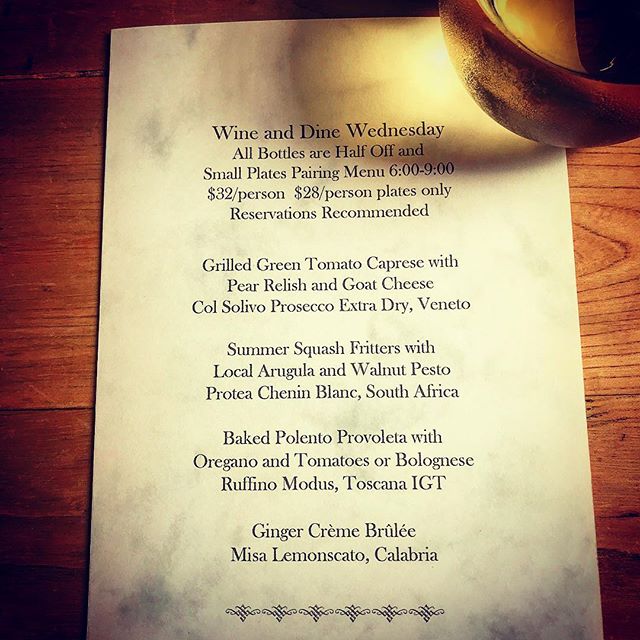 Wine and Dine Wednesday
All Bottles are Half Off and
Small Plates Pairing Menu 6:00-9:00
$32/person $28/person plates only
Reservations Recommended
Grilled Green Tomato Caprese with
Pear Relish and Goat Cheese
Col Solivo Prosecco Extra Dry, Veneto
Summer Squash Fritters with
Local Arugula and Walnut Pesto
Protea Chenin Blanc, South Africa
Baked Polento Provoleta with
Oregano and Tomatoes or Bolognese
Ruffino Modus, Toscana IGT
Ginger Crème Brûlée
Misa Lemonscato, Calabria